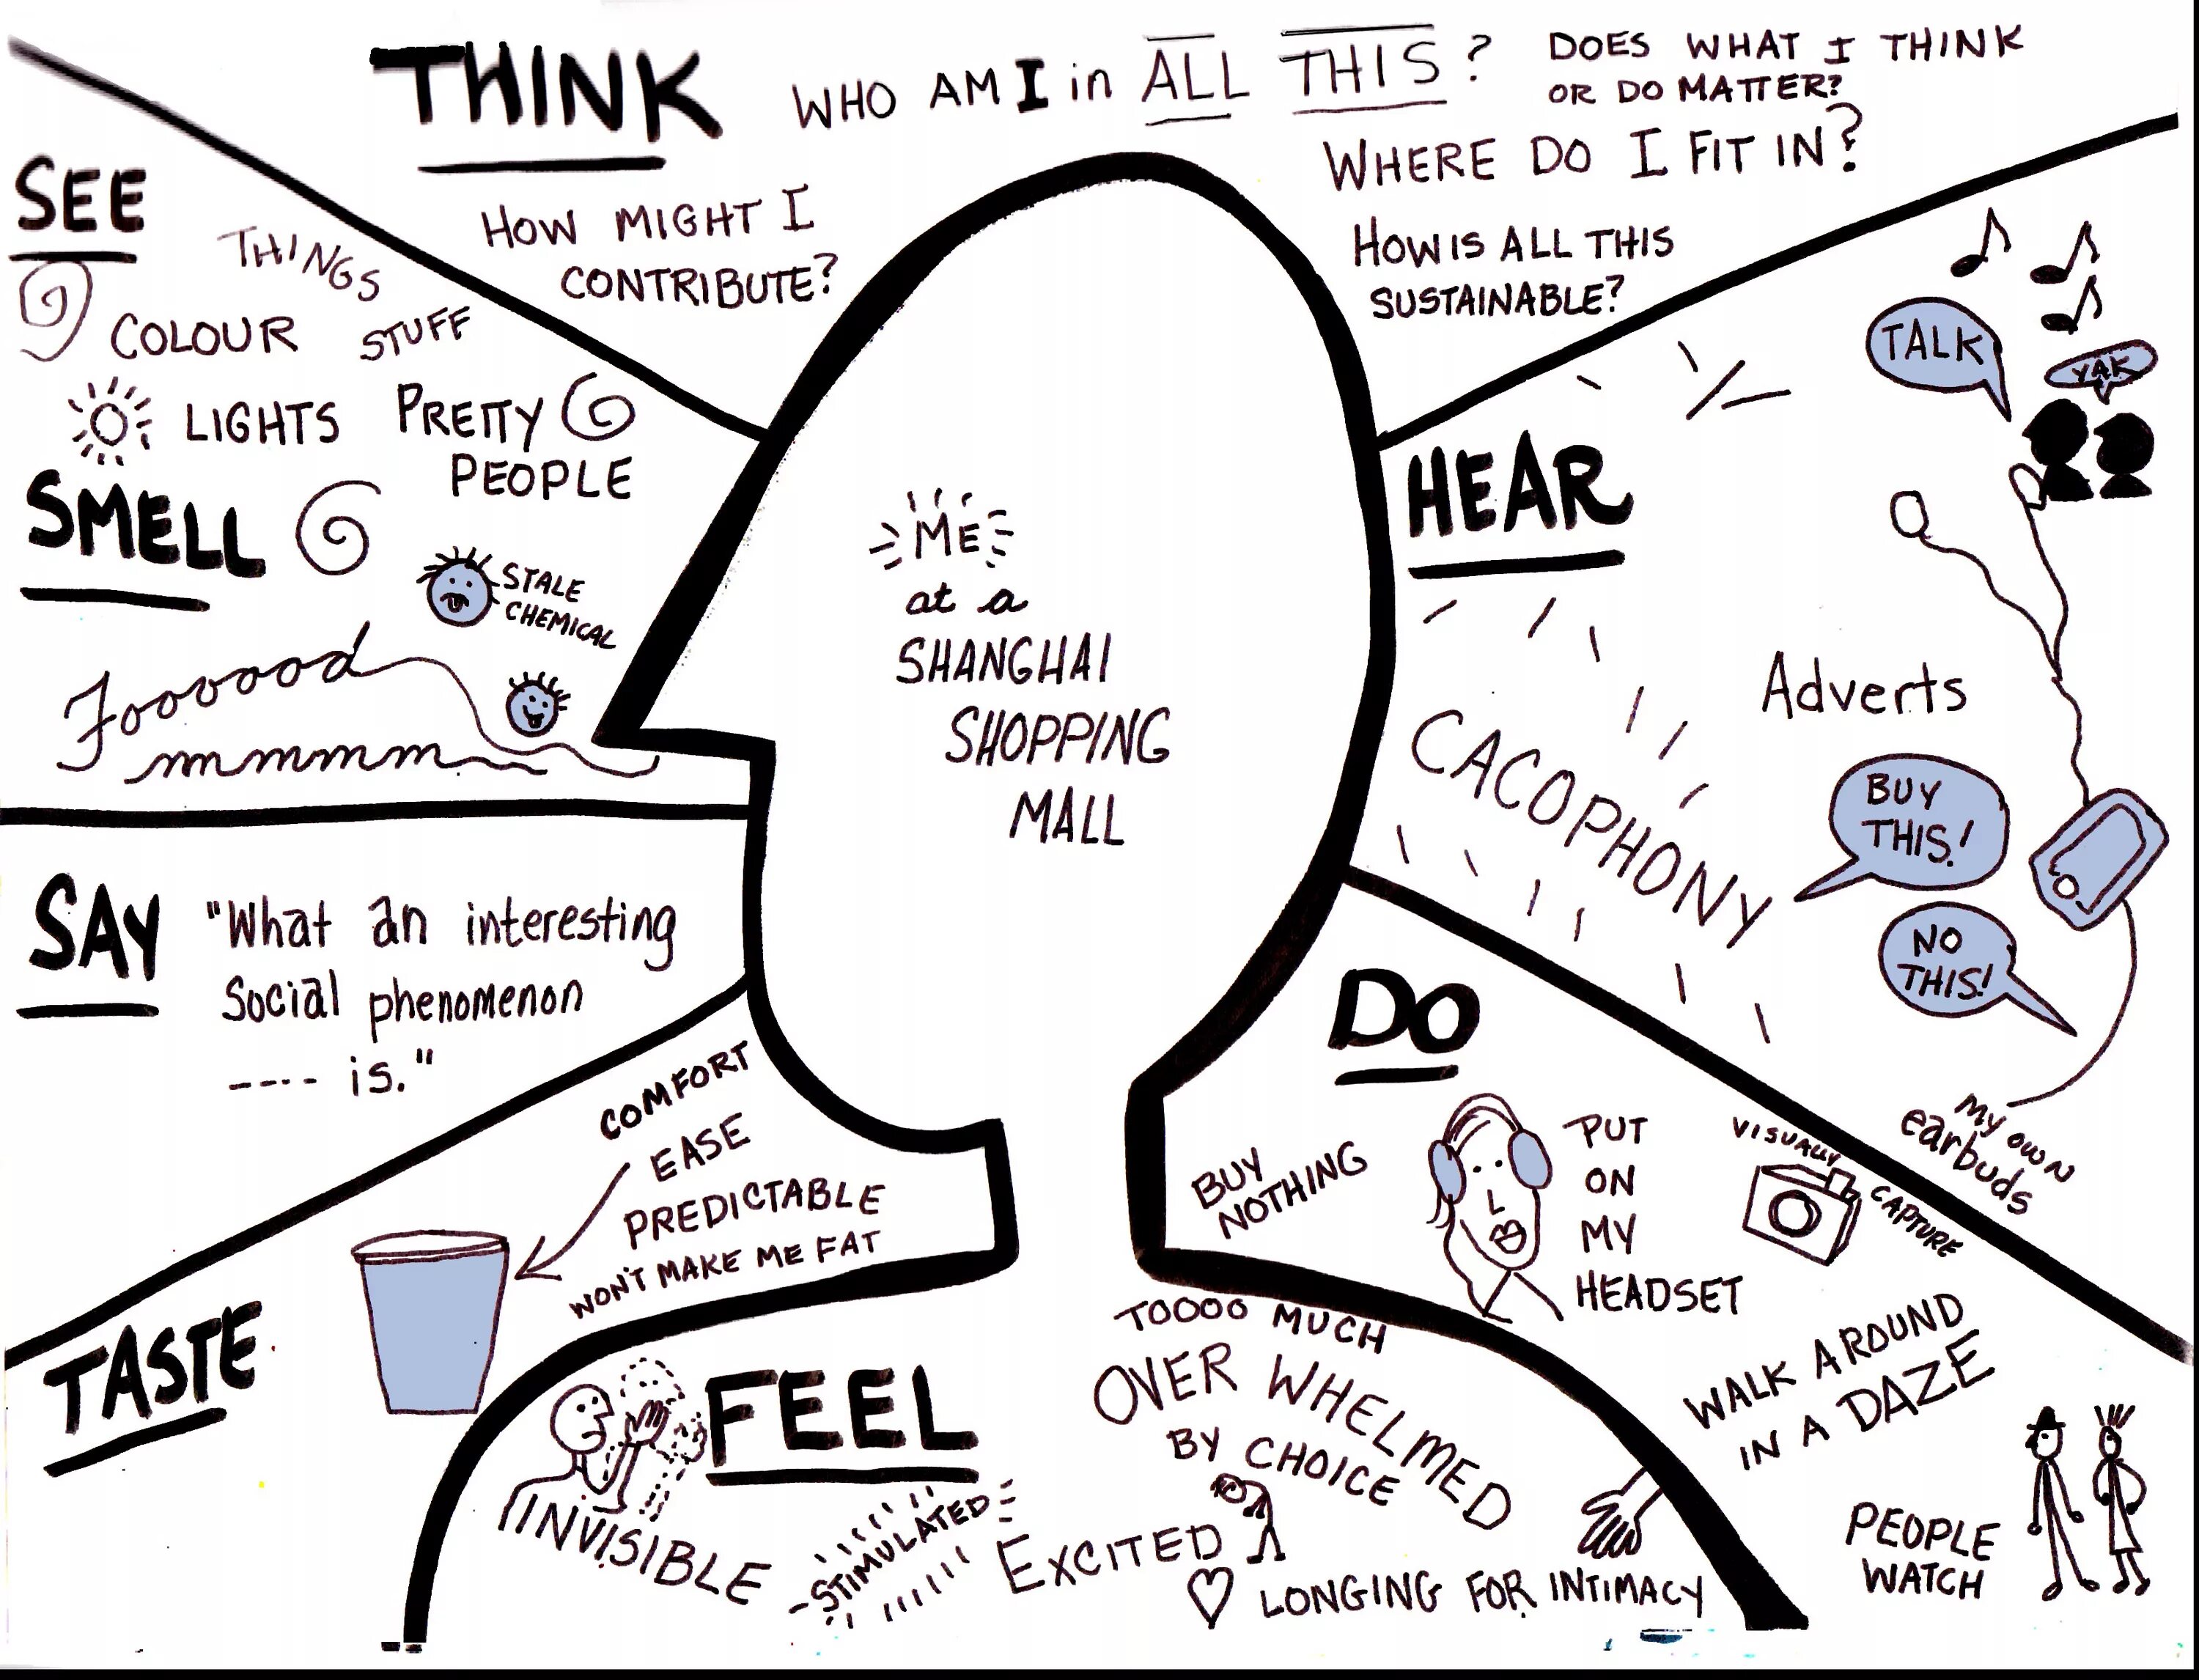 THINK
WHO AM I in ALL THIS?
DOES WHAT I THINK
OR DO MATTER?
WHERE DO I FIT IN?
HOW MIGHT I
CONTRIBUTE?
HOW IS ALL THIS
SUSTAINABLE?
SEE
THINGS
COLOUR
STUFF
LIGHTS
PRETTY
PEOPLE
SMELL
STALE
CHEMICAL
Foooood
mmmmm
ME
at a
SHANGHAI
SHOPPING
MALL
HEAR
TALK
YAK
Adverts
CACOPHONY
BUY
THIS!
NO
THIS!
MY OWN
earbuds
SAY
"What an interesting
Social phenomenon
---- is."
TASTE
COMFORT
EASE
PREDICTABLE
WON'T MAKE ME FAT
DO
BUY
NOTHING
PUT
ON
MY
HEADSET
VISUALLY
CAPTURE
WALK AROUND
IN A DAZE
PEOPLE
WATCH
FEEL
INVISIBLE
STIMULATED
EXCITED
TOOOO MUCH
OVER WHELMED
BY CHOICE
LONGING FOR INTIMACY